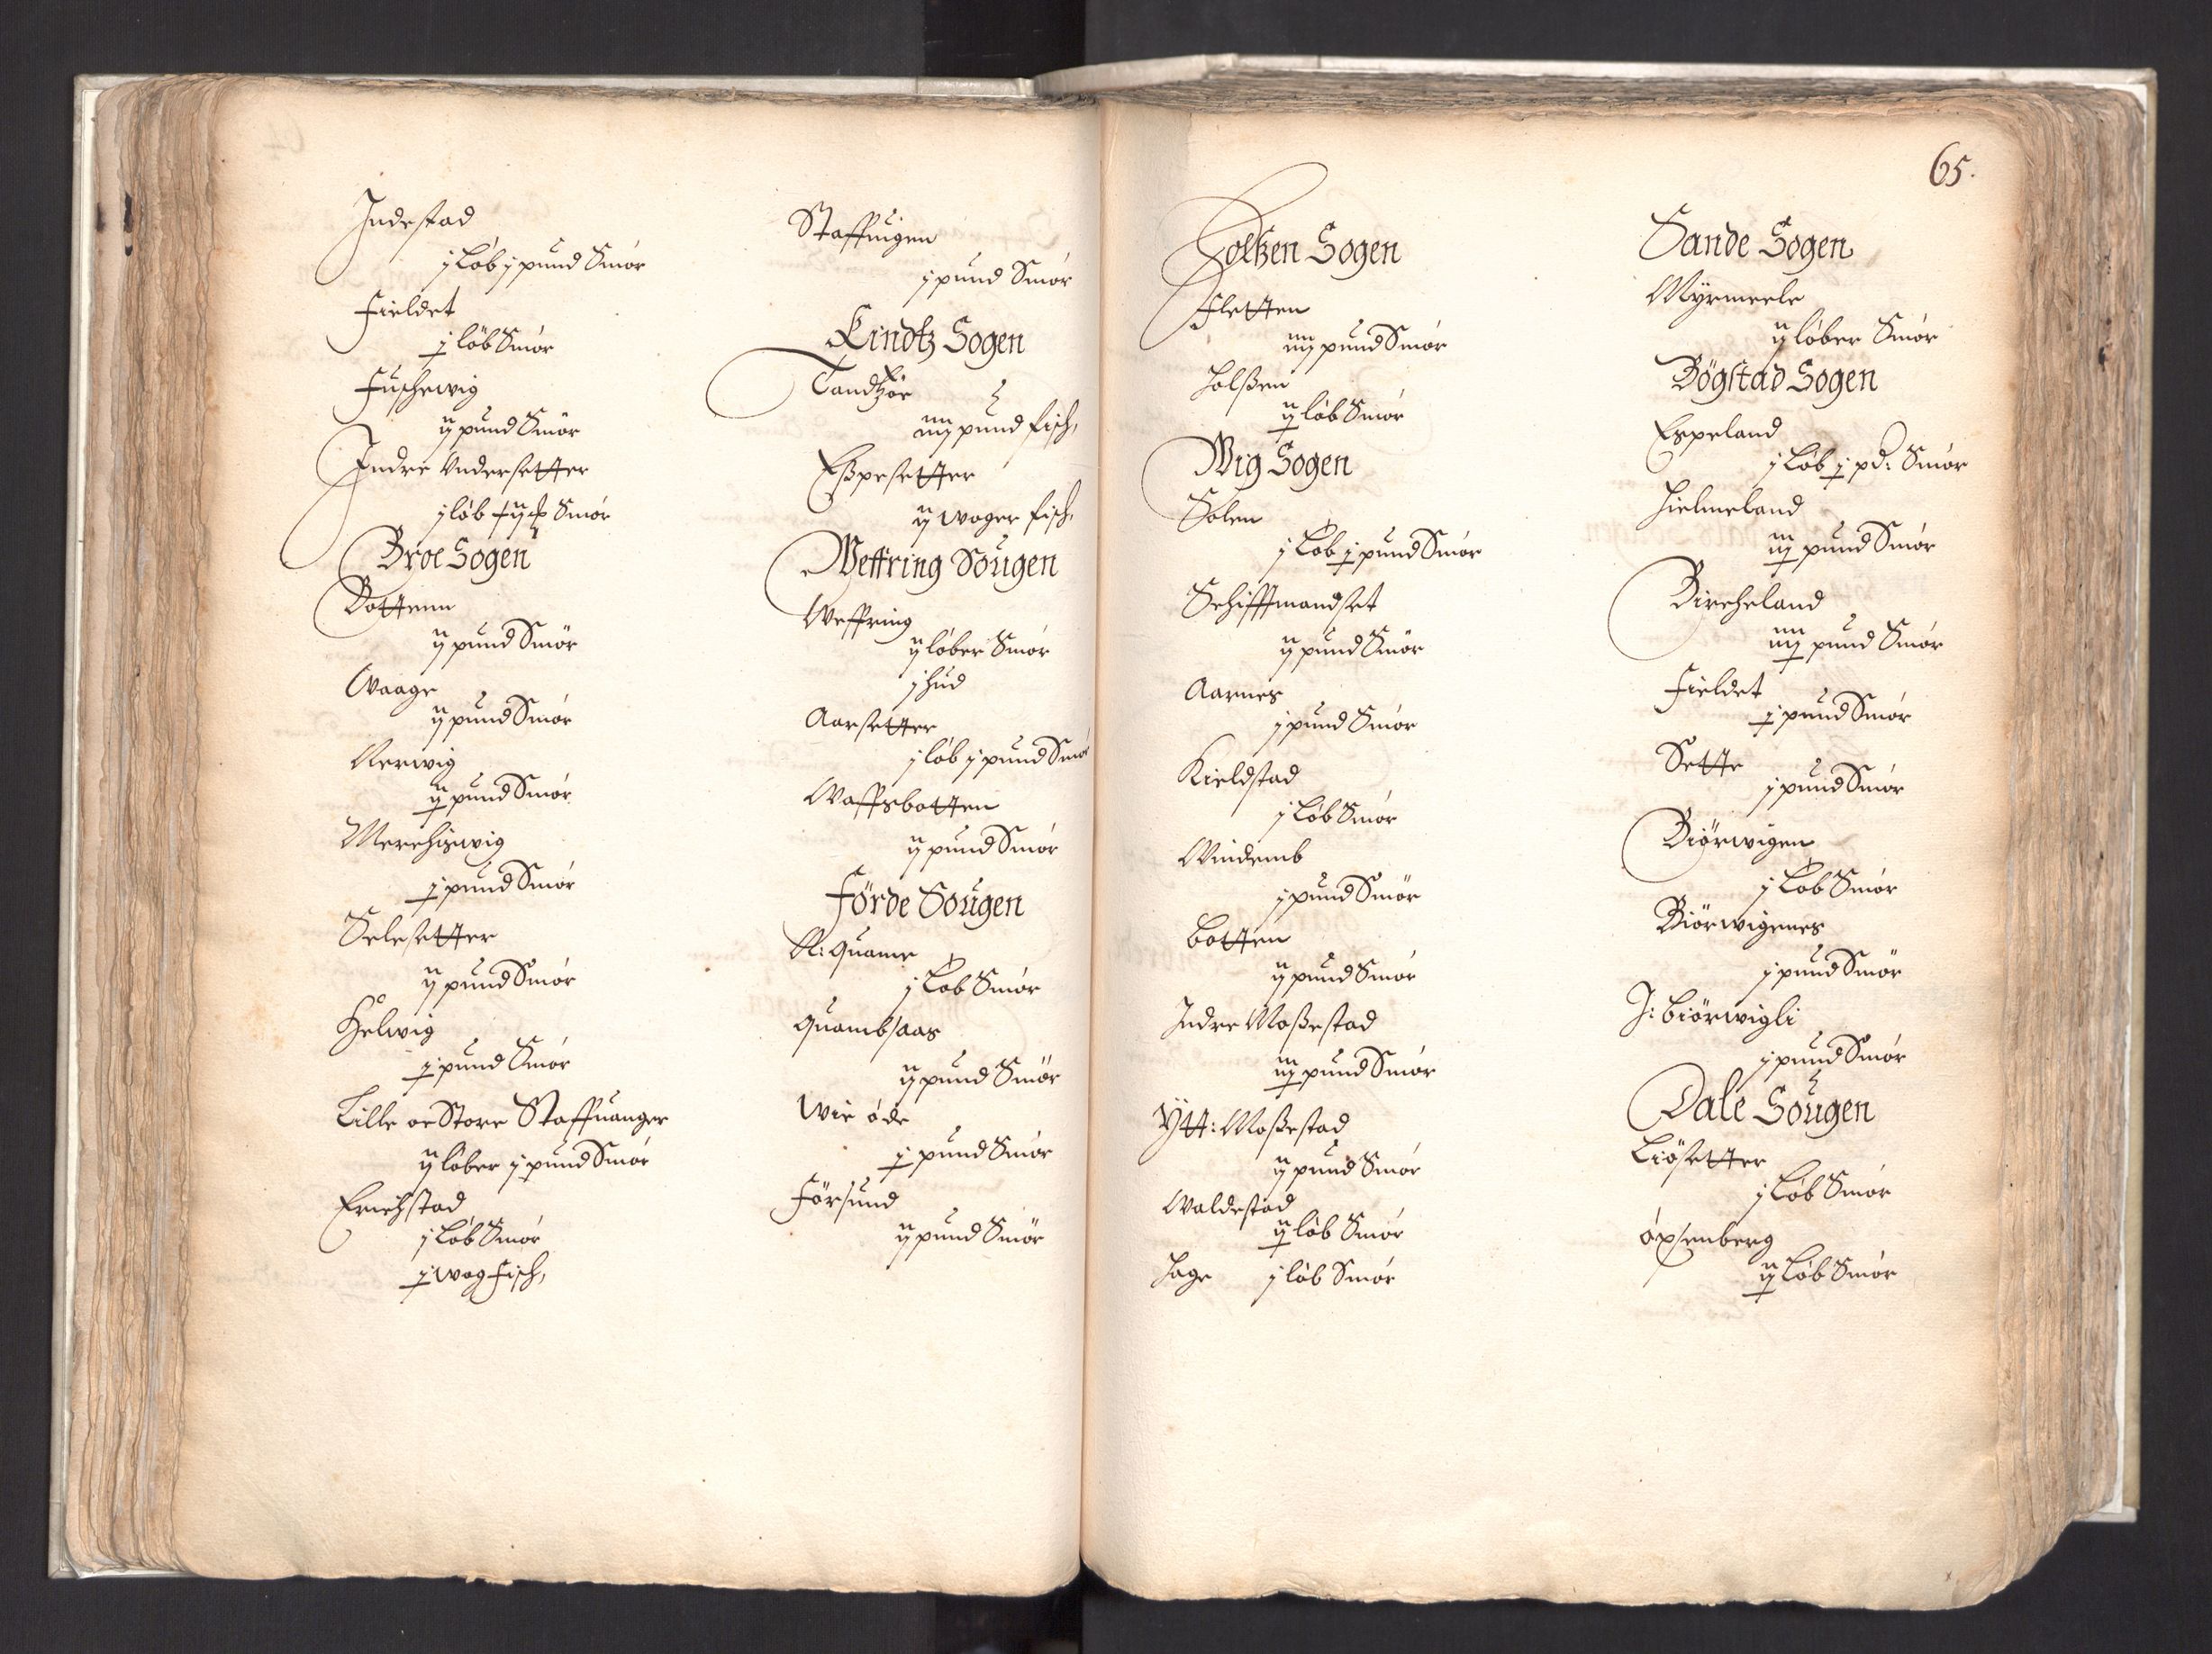 Indestad
j Löb j pund Smör
Fieldet
j löb Smör
Fuschewig
ij pund Smör
Indre Vndersetter
j löb Smör
Broe Sogen
Bottenn
ij pund Smör
Waage
ij pund Smör
Nerwig
ij pund Smör
Merchiswig
j pund Smör
Selesetter
ij pund Smör
Helwig
j pund Smör
Lille oc Store Staffuanger
ij löber j pund Smör
Erichstad
j Löb Smör
j wog Fisch,
Staffuigen
j pund Smör
Eindtz Sogen
Tandtzör
iiij pund fisch,
Eßpesetter
ij woger fisch,
Weffring Sougen
Weffring
ij löber Smör
j hud
Aarsetter
j löb j pund Smör
Waffsbotten
ij pund Smör
Förde Sougen
N: Quame
j Löb Smör
Quambsaas
ij pund Smör
Wie öde
j pund Smör
Försund
ij pund Smör
65.
Holtzen Sogen
Fletten
iiij pund Smör
Holßen
ij löb Smör
Wig Sogen
Solem
j Löb j pund Smör
Schiffmandset
ij pund Smör
Aarnes
j pund Smör
Kieldstad
j Löb Smör
Windemb
j pund Smör
Botten
ij pund Smör
Indre Moßestad
iij pund Smör
Ytt: Moßestad
ij pund Smör
Waldestad
ij löb Smör
Hage j löb Smör
Sande Sogen
Myrmeele
ij löber Smör
Bögstad Sogen
Espeland
j Löb j pd: Smör
Hielmeland
iij pund Smör
Bircheland
iiij pund Smör
Fieldet
j pund Smör
Sette
j pund Smör
Biörwigen
j Löb Smör
Biörwigenes
j pund Smör
J: Biörwigli
j pund Smör
Dale Sougen
Liösetter
j Löb Smör
öxsenberg
ij Löb Smör